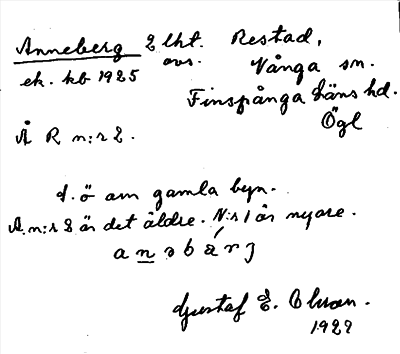 Anneberg 2 lht. Restad,
avs. Vånga sn.
ek. kb 1925
Finspånga läns hd.
Ögl
Å R n:r 2.
d. ö om gamla byn.
A. n:r 2 är det äldre. N:r 1 är nyare.
anəbärj
Gustaf E. Olsson.
1929